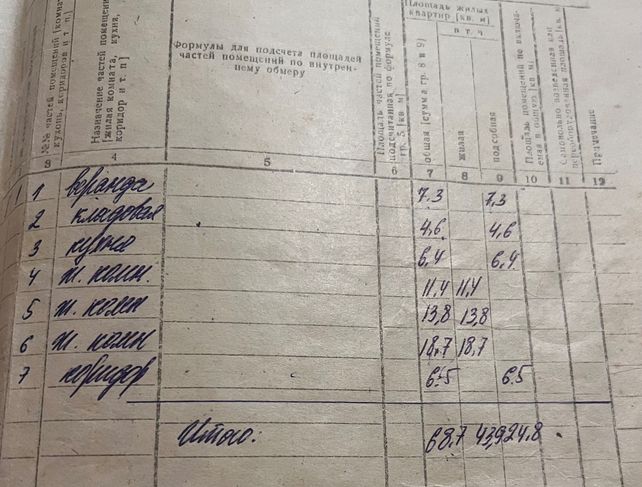 №№ частей помещений [комнат, кухонь, коридоров и т. п.]
Назначение частей помещений [жилая комната, кухня, коридор и т. п.]
Формулы для подсчета площадей
частей помещений по внутрен-
нему обмеру
Площадь частей помещений
подсчитанная по формуле
гр. 5 [кв. м]
Площадь жилых
квартир [кв. м]
в т. ч.
общая [сумма гр. 8 и 9]
жилая
подсобная
Площадь помещений не включа-
емая в общую [кв. м]
Самовольно возведенная или
переоборудованная площадь [кв. м]
Примечание
3 4 5 6 7 8 9 10 11 12
1 1 веранда 7,3 7,3
2 кладовая 4,6 4,6
3 кухня 6,4 6,4
4 ж. комн. 11,4 11,4
5 ж. комн 13,8 13,8
6 ж. комн 18,7 18,7
7 коридор 6.5 6.5
Итого: 68,7 43,9 24,8